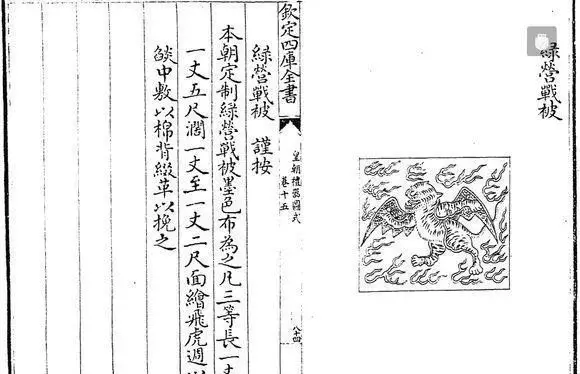 綠營戰被
欽定四庫全書
皇朝禮器圖式
卷十五
八十四
綠營戰被 謹按
本朝定制綠營戰被墨色布為之凡三等長一丈
一丈五尺濶一丈至一丈二尺面繪飛虎週以
燄中敷以棉背綴革以挽之